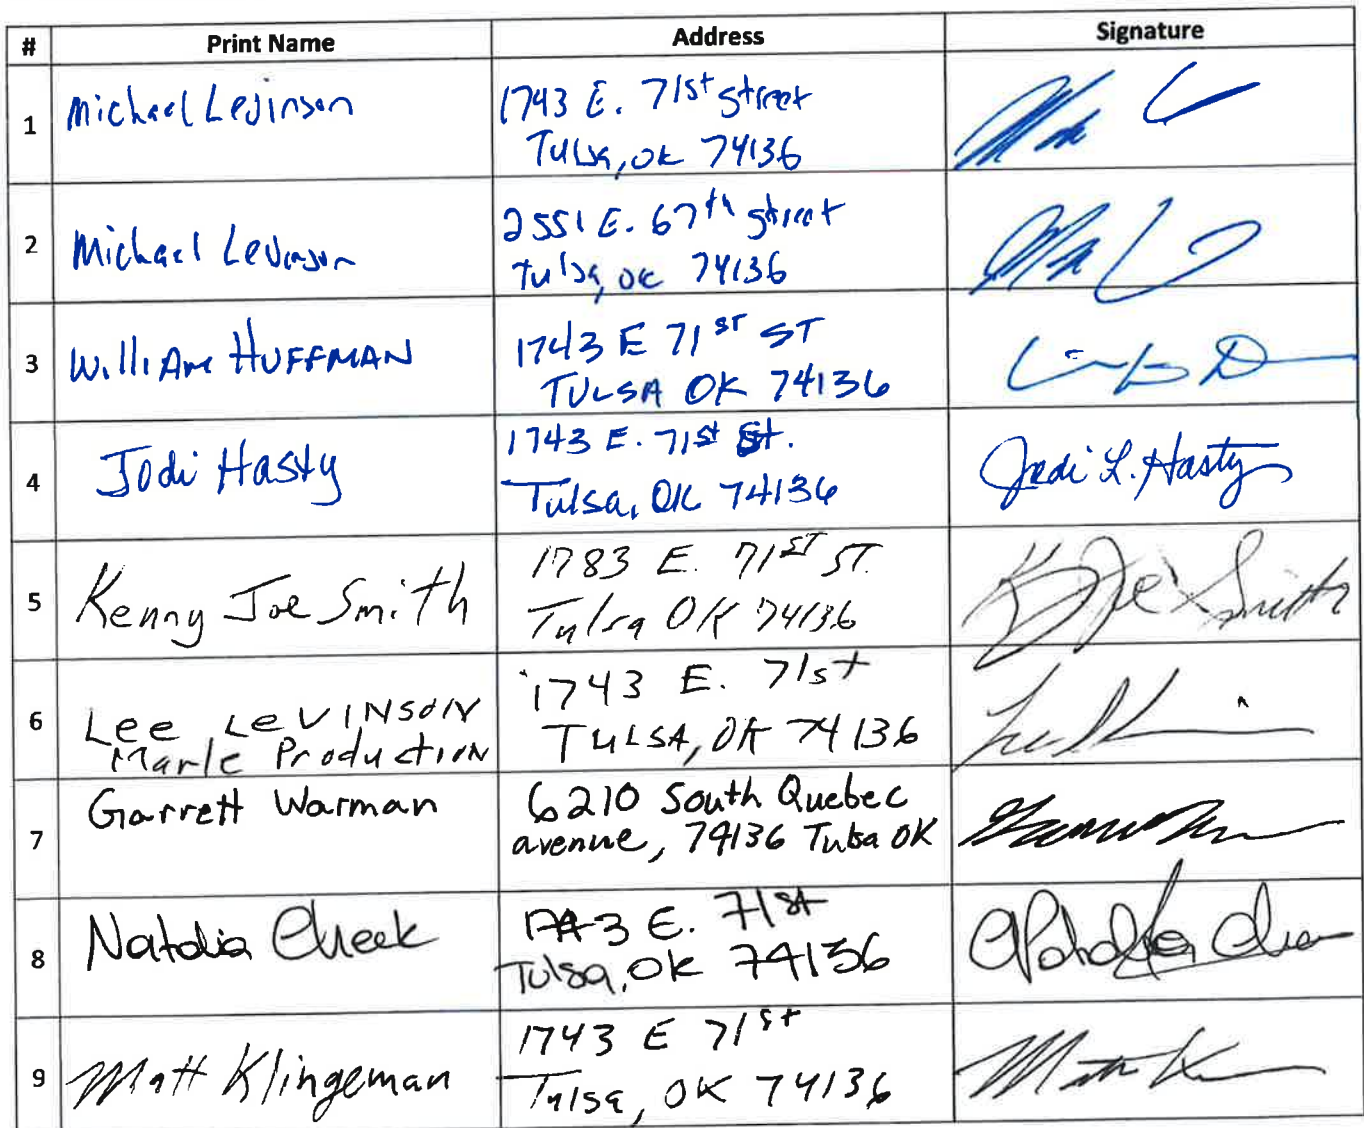 # Print Name Address Signature
1 Michael Levinson 1743 E. 71st Street
Tulsa, OK 74136
2 Michael Levinson 2551 E. 67th Street
Tulsa, OK 74136
3 William HUFFMAN 1743 E 71ST ST
TULSA OK 74136
4 Jodi Hasty 1743 E. 71st St. Jodi L. Hasty
Tulsa, OK 74136
5 Kenny Joe Smith 1783 E. 71ST ST. K Joe Smith
Tulsa OK 74136
6 Lee LeVINSON 1743 E. 71st
Marle Production TULSA, OK 74136
7 Garrett Warman 6210 South Quebec
avenue, 74136 Tulsa OK
8 Natalia Cheek 1743 E. 71st
Tulsa, OK 74136
9 Matt Klingeman 1743 E 71st
Tulsa, OK 74136